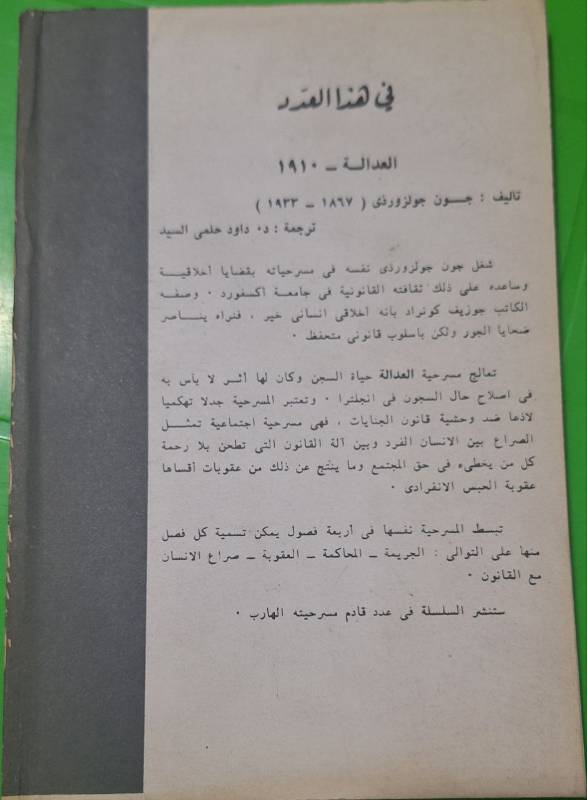 في هذا العدد
العدالة ــ ١٩١٠
تاليف : جــون جولزورذى ( ١٨٦٧ ــ ١٩٣٣ )
ترجمة : د٠ داود حلمى السيد
شغل جون جولزورذى نفسه فى مسرحياته بقضايا أخلاقيــة
وساعده على ذلك ثقافته القانونية فى جامعة اكسفورد ٠ وصفـه
الكاتب جوزيف كونراد بانه أخلاقى انسانى خير ، فنراه ينــاصر
ضحايا الجور ولكن باسلوب قانونى متحفظ ٠
تعالج مسرحية العدالة حياة السجن وكان لها أثــر لا بأس به
فى اصلاح حال السجون فى انجلترا ٠ وتعتبر المسرحية جدلا تهكميا
لاذعا ضد وحشية قانون الجنايات ، فهى مسرحية اجتماعية تمثــل
الصراع بين الانسان الفرد وبين آلة القانون التى تطحن بلا رحمة
كل من يخطىء فى حق المجتمع وما ينتج عن ذلك من عقوبات أقساها
عقوبة الحبس الانفرادى ٠
تبسط المسرحية نفسها فى أربعة فصول يمكن تسمية كل فصل
منها على التوالى : الجريمة ــ المحاكمة ــ العقوبة ــ صراع الانسان
مع القانون ٠
ستنشر السلسلة فى عدد قادم مسرحيته الهارب ٠